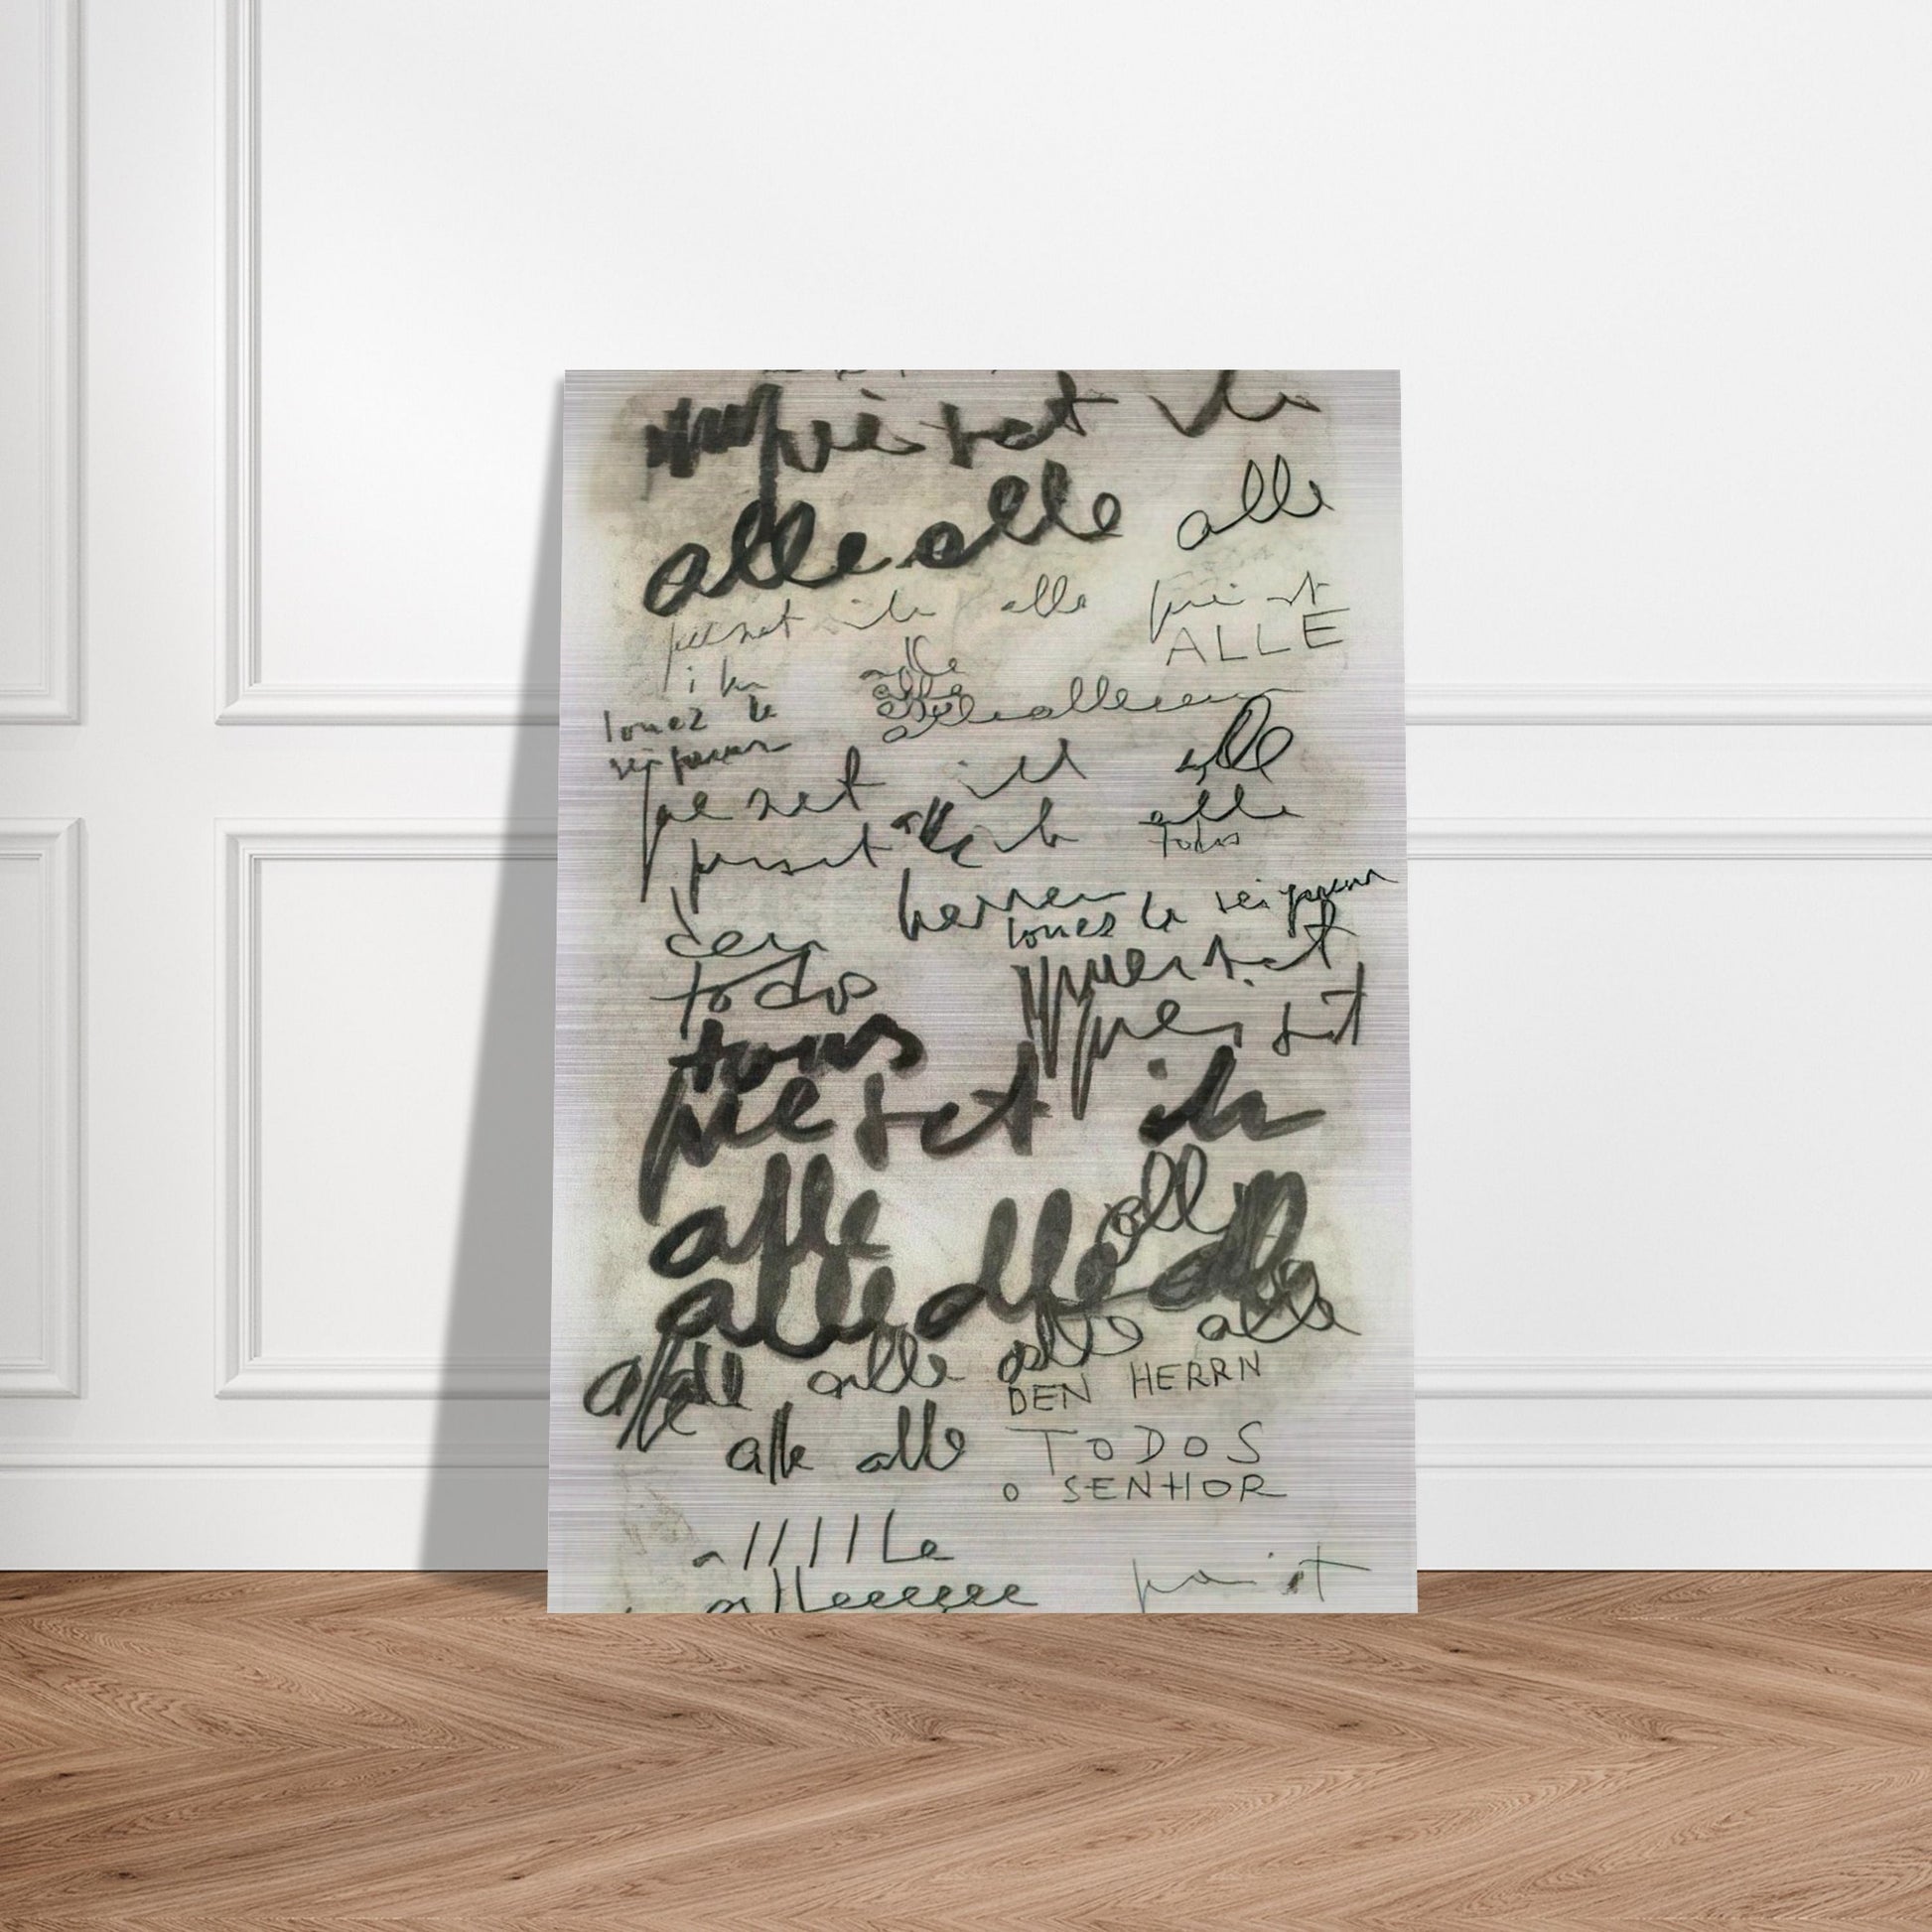 preiset ihn
alle alle alle
preiset ihn alle preist
ALLE
ihn
alle
louez le
alle
alle
seigneur
alle alleeeen
alle
preiset ihn
alle
preiset alle ihr
todos
herren
louez le seigneur
den
preiset
todos
preiset
tous
preiset ihn
alle alle
alle alle alle
alle alle alle alle
DEN HERRN
alle alle
TODOS
O SENHOR
allllle
alleeeeee
preist